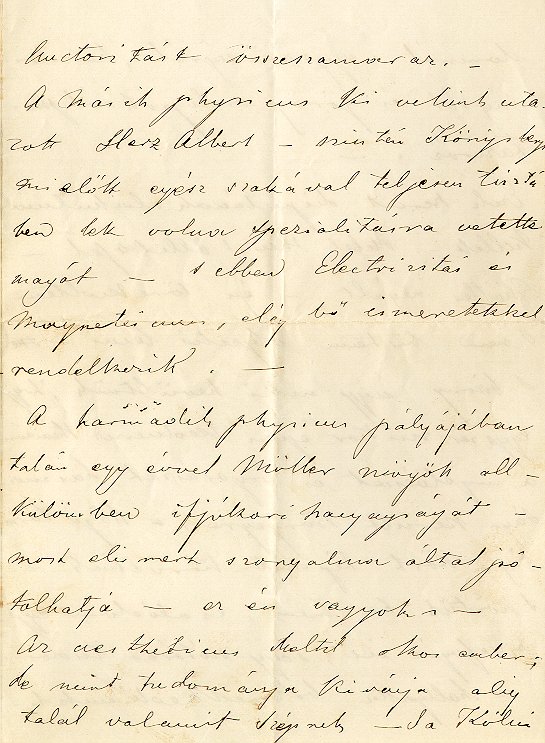 Auctoritást összezavar az. —
A másik physicus ki velünk uta
zott Herz Albert — szintén Königsberg
mielőtt egész szakával teljesen tisztá
ben lett volna spezialitásra vetette
magát — s ebben Electrizitás és
Magnetismus, elég bő ismeretekkel
rendelkezik. —
A harmadik physicus pályájában
talán egy évvel Möller mögött áll
különben ifjúkori hanyagságát —
most elismert szorgalma által pó-
tolhatja — ez én vagyok. —
Az aesthetikus okos ember;
de mint tudománya kivánja alig
talál valamit szépnek — Sa Kölni